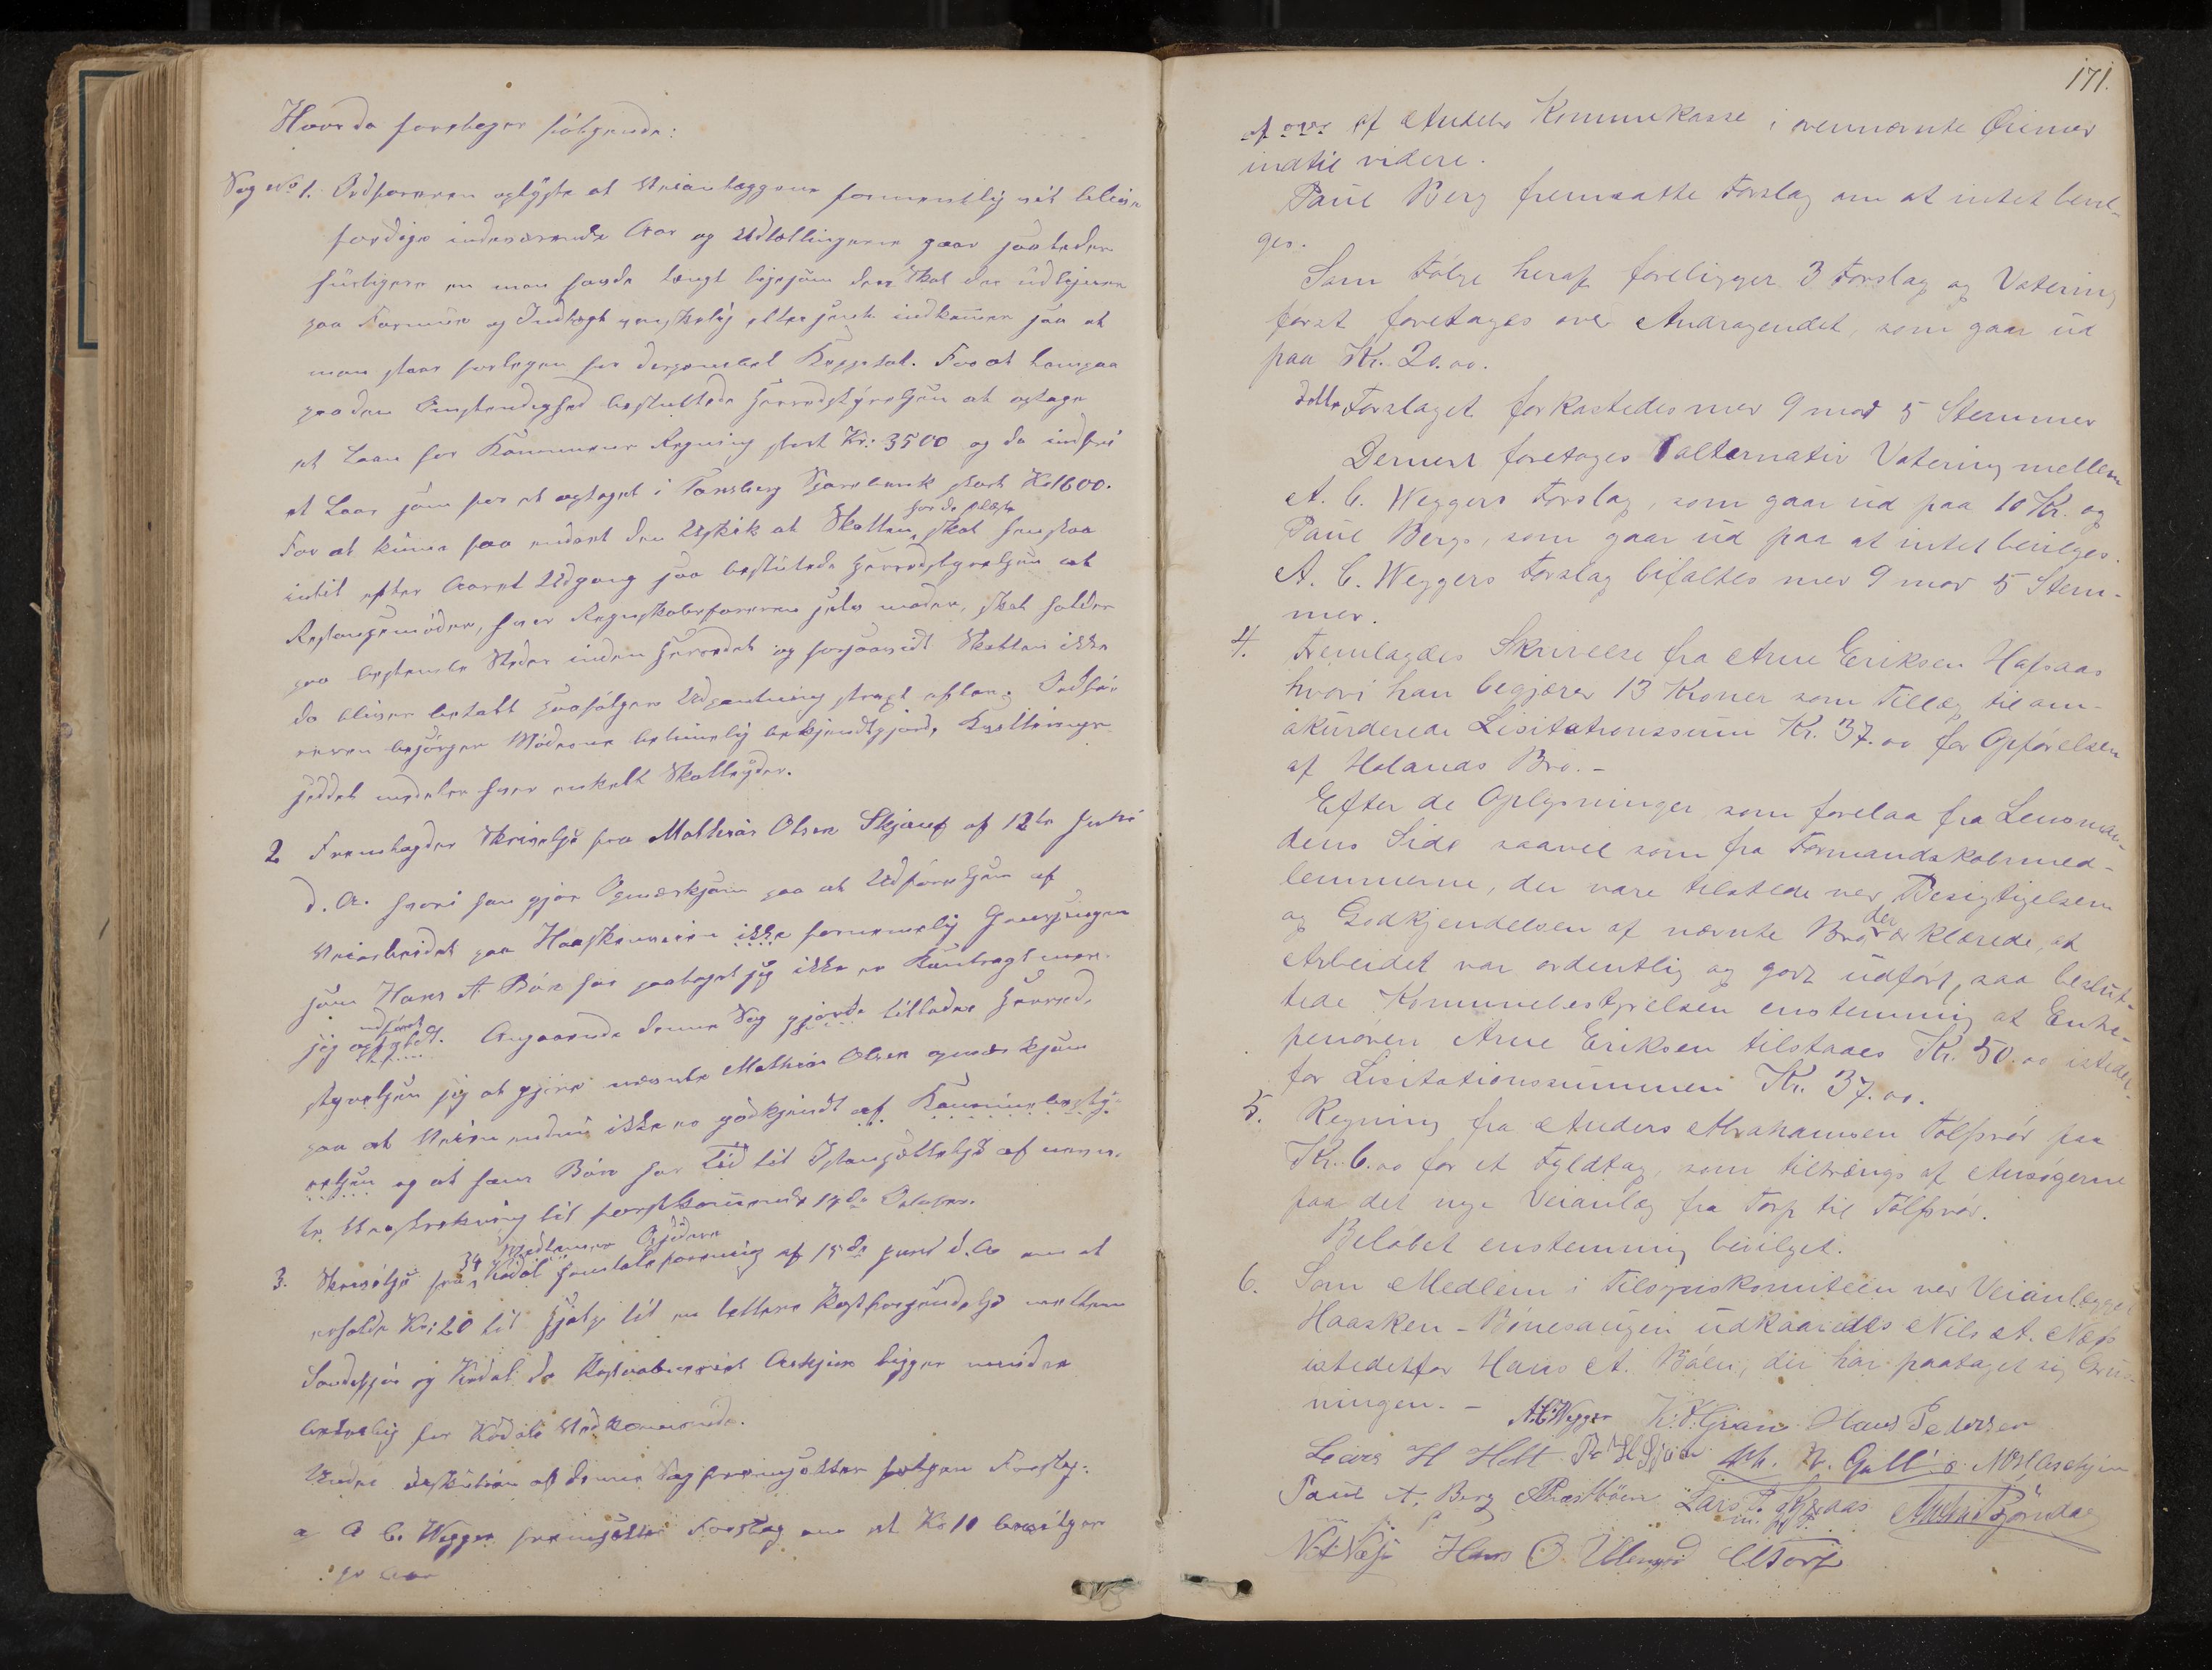 Hvorda foretoges følgende:
Sag No 1. Ordføreren oplyste at Veianlæggene formentlig vil blive
færdige indeværende Aar og Udtællingerne gaar saaledes
hurtigere en man havde tænkt ligesom den Skat der udlignes
paa Formue og Indtægt vanskelig eller sent indkommer saa at
man staar forlegen for disponibel Kappital. For at
paa den Omstendighed besluttede Herredstyrelsen at optage
et Laan for Kommunens Regning stort Kr: 3500 og da indfri
et Laan som før er optaget i Tønsberg Sparebank stort Kr 1600.
For at kunne faa endret den Uskik at Skatten for de fleste skal henstaa
indtil efter Aarets Udgang saa besluttede Herredstyrelsen at
Restancemøder, hvor Regnskabsføreren selv møder, skal holdes
paa bestemte Steder inden Herredet og forsaavidt Skatten ikke
da bliver betalt paafølger Udpantning strax efter. Ordfø-
reren besørger Møderne betimelig bekjendtgjort,
seddel meddeles hver enkelt Skatteyder.
2 Fremlagdes Skrivelse fra Mathias Olsen Skjauf af 12te Juli
d. A. hvori han gjør Opmærksom paa at Udførelsen af
Veiarbeidet paa Haaskenveien ikke fornemelig Grusningen
som Hans A Bøen har paataget sig ikke er Kontragtmæs-
sig opfyldt. udført Angaaende denne Sag gjorde tillader Herred-
styrelsen sig at gjøre nævnte Mathias Olsen opmærksom
paa at Veien endnu ikke er godkjendt af Kommunebesty-
relsen og at Hans Bøen har Tid til Istandsættelse af nevn-
te Veistrekning til førstkommende 14de Oktober.
3. Skrivelse fra 34 Medlemmer Opsidere Kodal Samtaleforening af 15de Juni d. A om at
erholde Kr: 20 til Hjælp til en lettere Postforsendelse mellem
Sandefjor og Kodal da Postaabneriet Askjem ligger mindre
beleilig for Kodals Vedkommende.
Under diskution af denne Sag fremsættes følgen Forslag:
a A C. Wegger fremsætter Forslag om at Kr 10 bevilges
pr Aar
171.
af Andebu Kommunekasse i ovennævnte Øiemed
indtil videre.
Paul Berg fremsatte Forslag om at intet bevil-
ges.
Som Følge heraf foreligger 3 Forslag og Votering
først foretages over Andragendet, som gaar ud
paa Kr. 20.00.
dette Forslaget forkastedes med 9 mod 5 Stemmer
Dernest foretages alternativ Votering mellem
A. C. Weggers Forslag, som gaar ud paa 10 Kr. og
Paul Bergs, som gaar ud paa at intet bevilges.
A. C. Weggers Forslag bifaltes med 9 mod 5 Stem-
mer.
4. Fremlagdes Skrivelse fra Arne Eriksen Hafsaas
hvori han begjærer 13 Kroner som Tillæg til om-
akurderede Lisitationssum Kr. 37.00 for Opførelsen
af Holands Bro.-
Efter de Oplysninger som forelaa fra Lensman-
dens Side saavel som fra Formandskabsmed-
lemmerne, der vare tilstede ved Besigtigelsen
og Godkjendelsen af nævnte Bro der erklærede, at
Arbeidet var ordentlig og godt udført, saa beslut-
tede Kommunebestyrelsen enstemmig at Entre-
penøren Arne Eriksen tilstaaes Kr. 50.00 istedet-
for Lisitationssummen Kr. 37.00.
5. Regning fra Anders Abrahamsen Tolfsrød paa
Kr. 6.00 for et Fyldtag, som tiltrængs af Ansøgerne
paa det nye Veianlæg fra Torp til Tolfsrød.
Beløbet enstemmig bevilget.
6. Som Medlem i Tilsynskomiteen ved Veianlægget
Haasken - Bønesaugen udkaaredes Nils A. Næss
istedetfor Hans A. Bøen, der har paataget sig Grus-
ningen. -
A. C. Wegger Hans Pedersen
Lars H Holt
Paul A. Berg Præstbøen Lars P.
Hans O Ulengrød CTorp